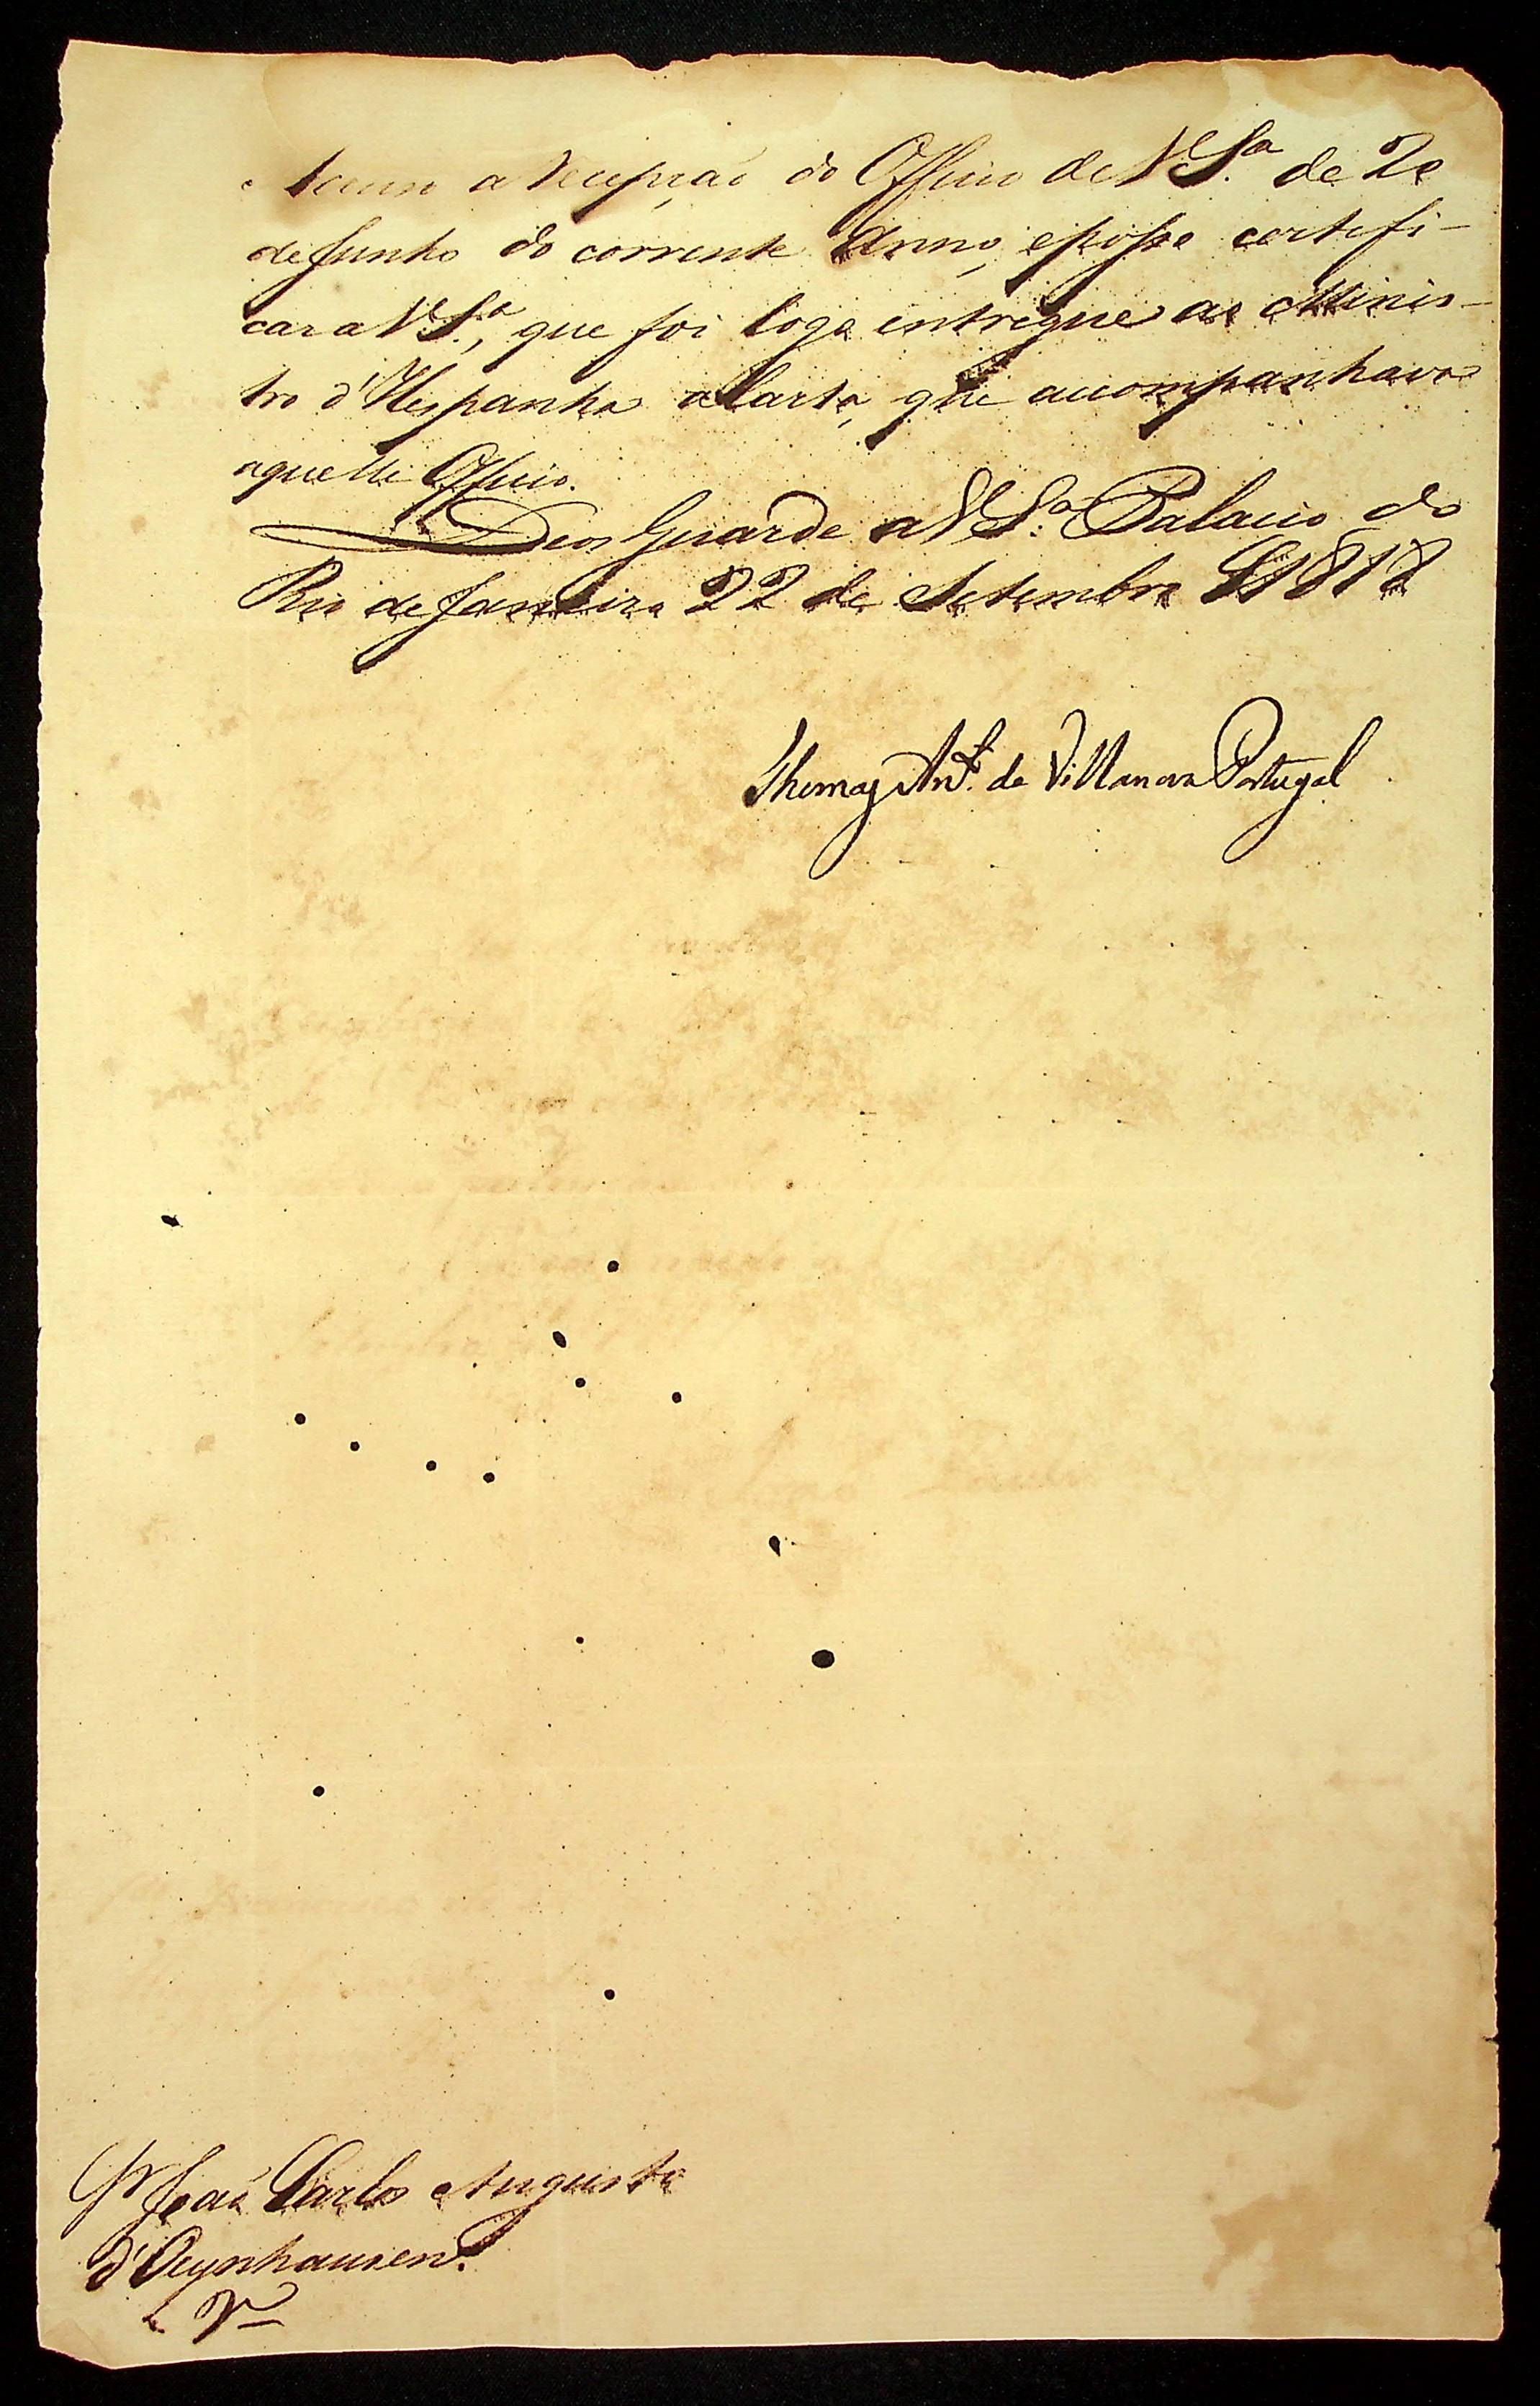 Accuso a recepçaõ do Officio de V. S.ª de 20
de Junho do corrente Anno, e posso certefi-
car a V. S.ª, que foi logo entregue ao Minis-
tro d'Hespanha a Carta, que accompanhava
aquelle Officio.
Deos Guarde a V. S.ª Palacio do
Rio de Janeiro 22 de Setembro 1818
Thomaz Ant.º de Villanova Portugal
Sr Joaõ Carlos Augusto
d'Oeynhausen.